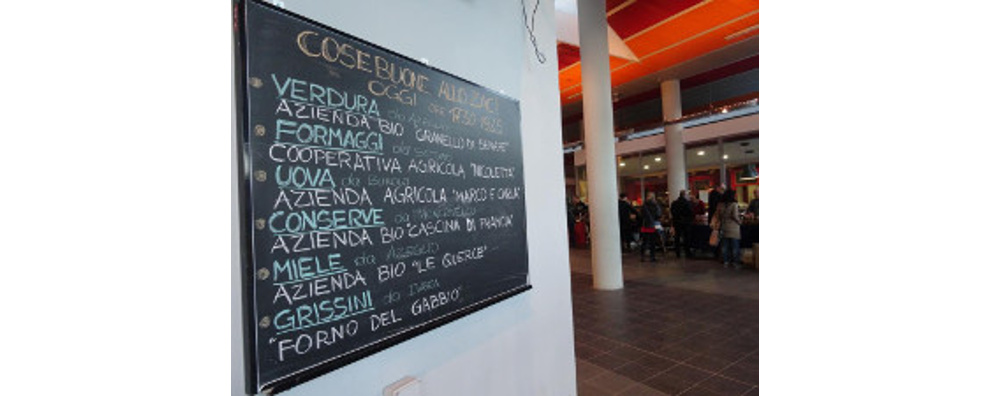 COSE BUONE ALLO ZAC!
OGGI ORE 17.30-19.25
VERDURA da
AZIENDA BIO "GRANELLO DI SENAPE"
FORMAGGI da
COOPERATIVA AGRICOLA "NICOLETTA"
UOVA da
AZIENDA AGRICOLA "MARCO E CARLA"
CONSERVE da
AZIENDA BIO "CASCINA DI FRANCIA"
MIELE da AZEGLIO
AZIENDA BIO "LE QUERCE"
GRISSINI da IVREA
"FORNO DEL GABBIO"